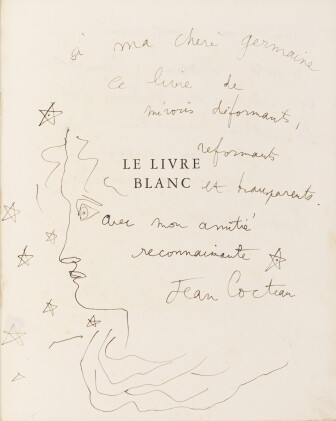 à ma chère germaine
ce livre de
miroirs déformants,
reformants
LE LIVRE
BLANC et transparents.
avec mon amitié
reconnaissante
Jean Cocteau